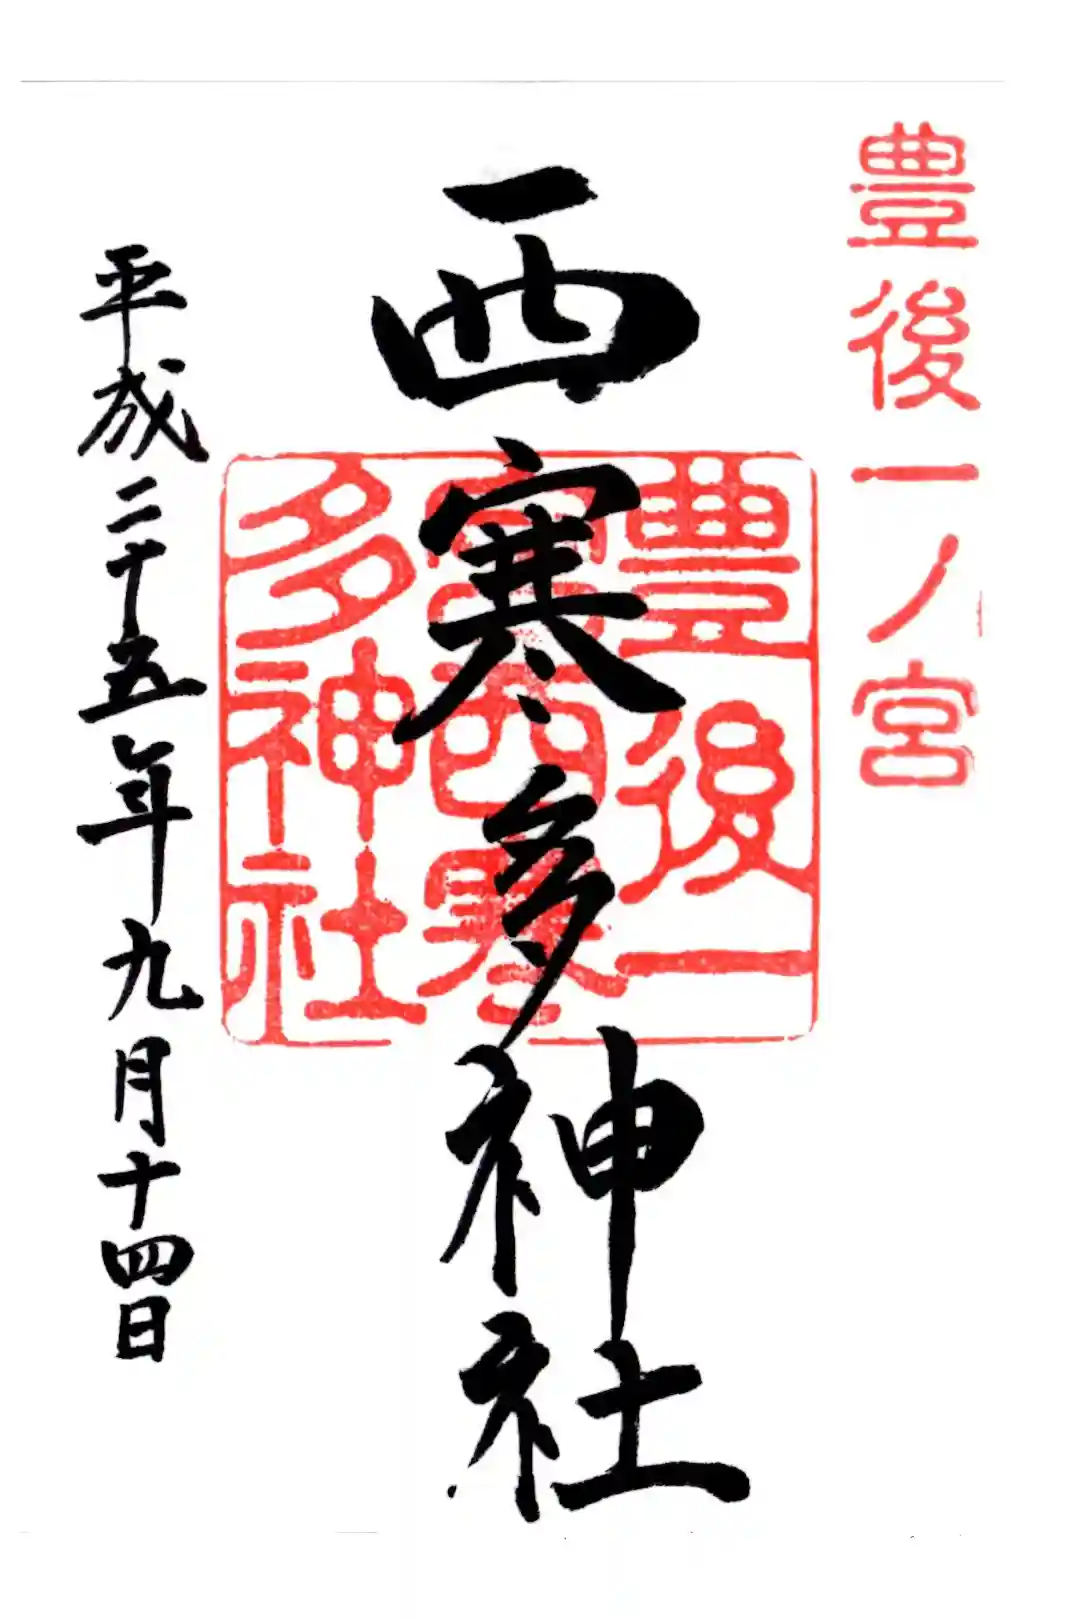 豊後一ノ宮
西寒多神社
豊後一
宮西寒
多神社
平成二十五年九月十四日